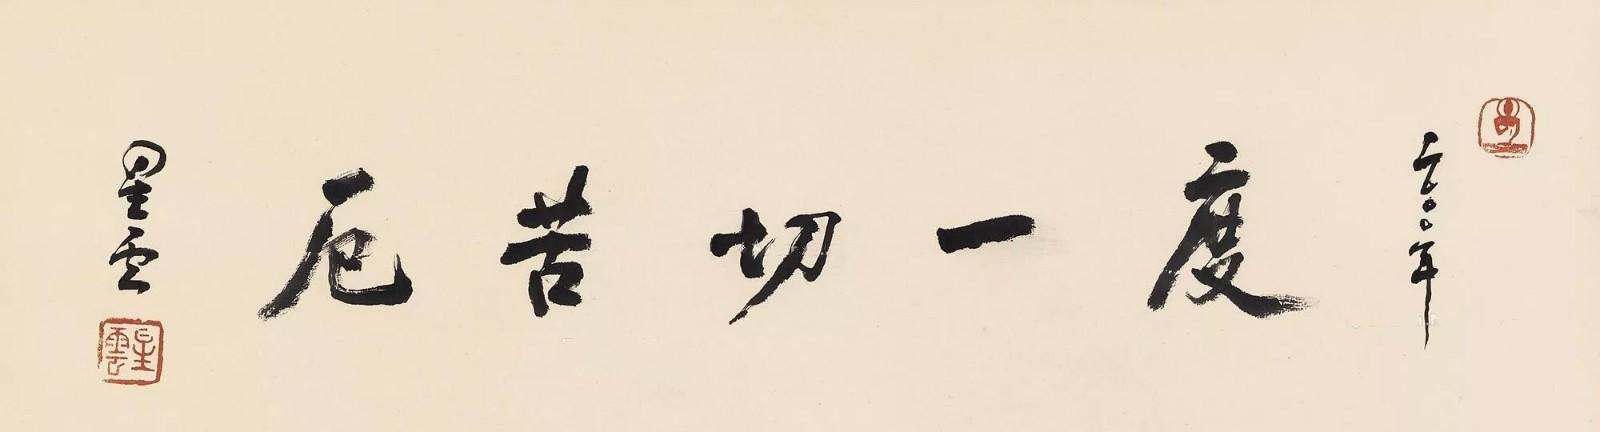 二〇〇〇年
度一切苦厄
星云
星雲